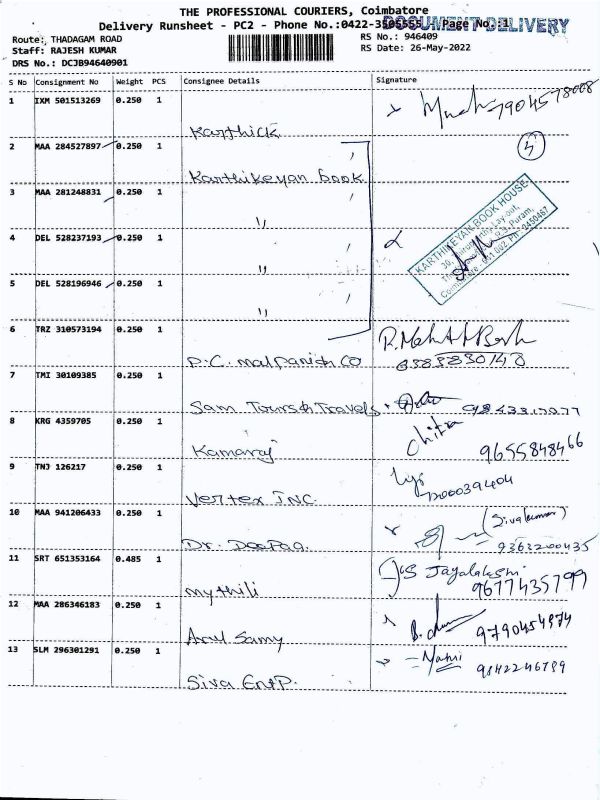 THE PROFESSIONAL COURIERS, Coimbatore
Delivery Runsheet - PC2 - Phone No.:0422-3505555 Page No.:1
DOCUMENT DELIVERY
Route: THADAGAM ROAD
RS No.: 946409
Staff: RAJESH KUMAR
RS Date: 26-May-2022
DRS No.: DCJB94640901
S No Consignment No Weight PCS Consignee Details Signature
1 IXM 501513269 0.250 1
Karthick
2 MAA 284527897 0.250 1
5
Karthikeyan Book
3 MAA 281248831 0.250 1
"
4 DEL 528237193 0.250 1
"
5 DEL 528196946 0.250 1
"
KARTHIKEYAN BOOK HOUSE
6 TRZ 310573194 0.250 1
P.C. malpanish co
8383830148
7 TMI 30109385 0.250 1
Sam Tours & Travels
8 KRG 4359705 0.250 1
Chitra
9655848466
Kamaraj
9 TNJ 126217 0.250 1
Vertex INC.
10 MAA 941206433 0.250 1
(Sivakumar)
9363200435
Dr. Deepaa.
11 SRT 651353164 0.485 1
S Jayalakshmi
9677435799
mythili
12 MAA 286346183 0.250 1
9790454974
Arul Samy
13 SLM 296301291 0.250 1
9842246789
Siva EntP.